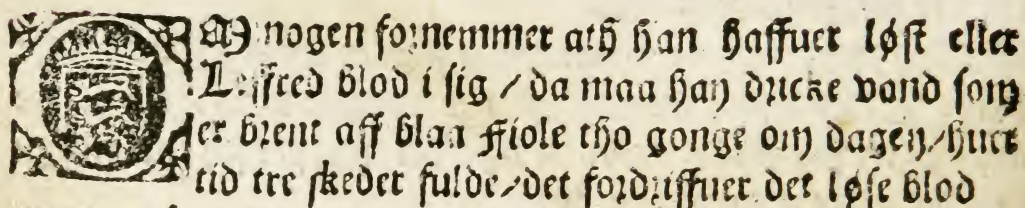 OM nogen fornemmer ath han haffuer løst eller
Leffred blod i sig / da maa han dricke vand som
er brent aff blaa Fiole tho gonge om dagen / huer
tid tre skeder fulde / det fordriffuer det løse blod